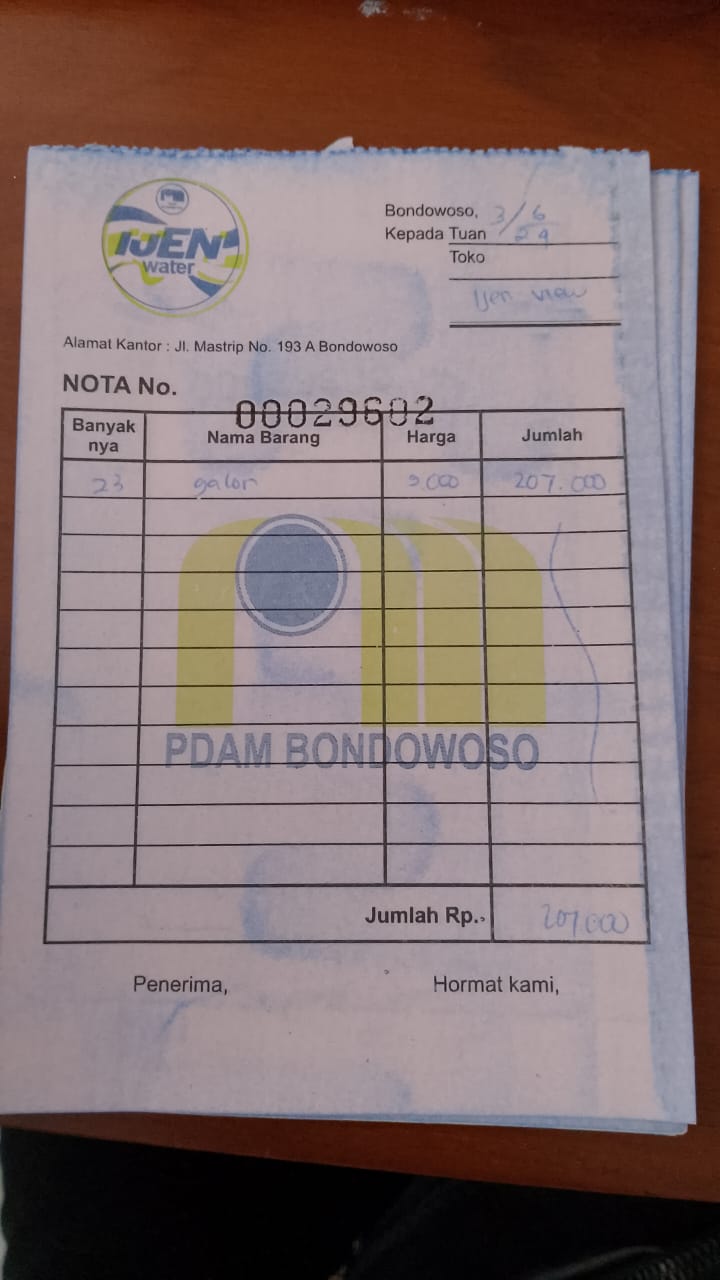 IJEN
water
Bondowoso, 3/6
Kepada Tuan 24
Toko
Ijen view
Alamat Kantor : Jl. Mastrip No. 193 A Bondowoso
NOTA No. 00029602
Banyak nya Nama Barang Harga Jumlah
23 galon 9.000 207.000
PDAM BONDOWOSO
Jumlah Rp. 207.000
Penerima, Hormat kami,